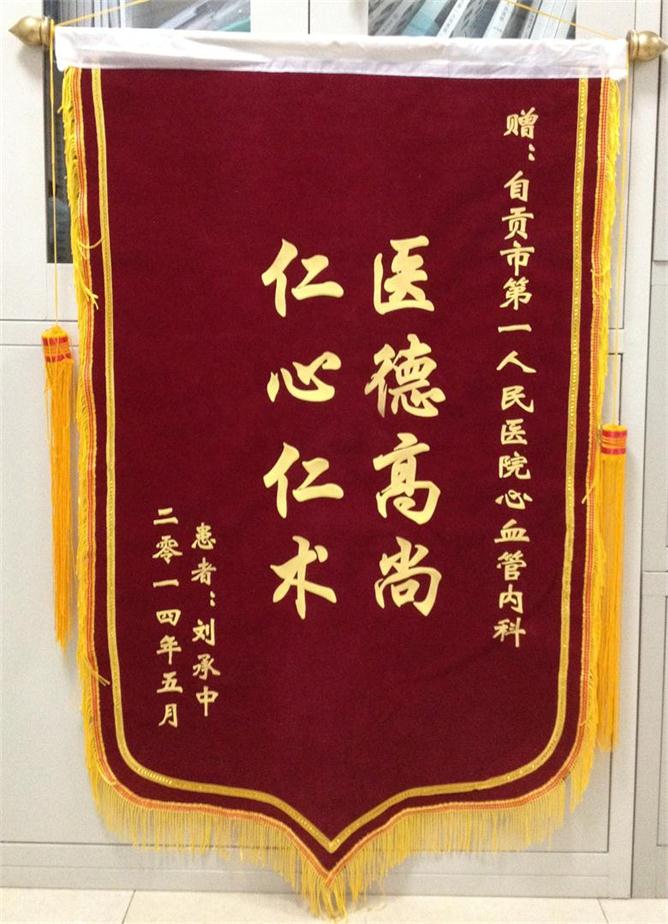 赠：自贡市第一人民医院心血管内科
医德高尚
仁心仁术
患者：刘承中
二零一四年五月